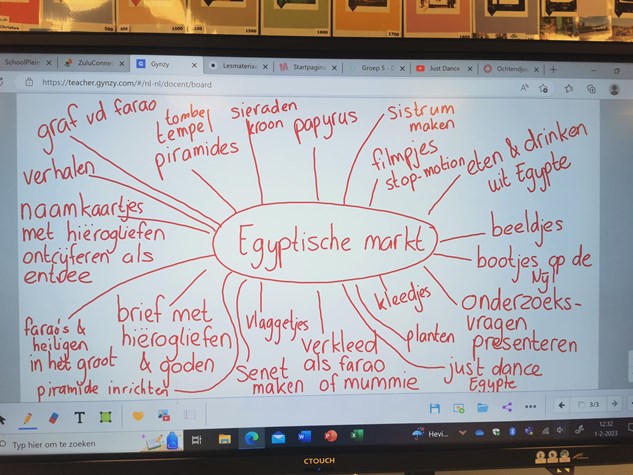 SchoolPlein
ZuluConne
Gynzy
Lesmateriaa
Startpagina
Groep 5 - D
Just Dance
Ochtendjou
https://teacher.gynzy.com/#/nl-nl/docent/board
graf vd farao
tombe
tempel
piramides
sieraden
kroon
papyrus
sistrum
maken
filmpjes
stop-motion
eten & drinken
uit Egypte
verhalen
naamkaartjes
met hiërogliefen
ontcijferen als
entree
Egyptische markt
beeldjes
bootjes op de
Nijl
farao's &
heiligen
in het groot
brief met
hiërogliefen
& goden
vlaggetjes
verkleed
als farao
of mummie
kleedjes
planten
onderzoeks-
vragen
presenteren
piramide inrichten
Senet
maken
just dance
Egypte
3/3
Typ hier om te zoeken
Hevi...
12:32
1-2-2023
CTOUCH